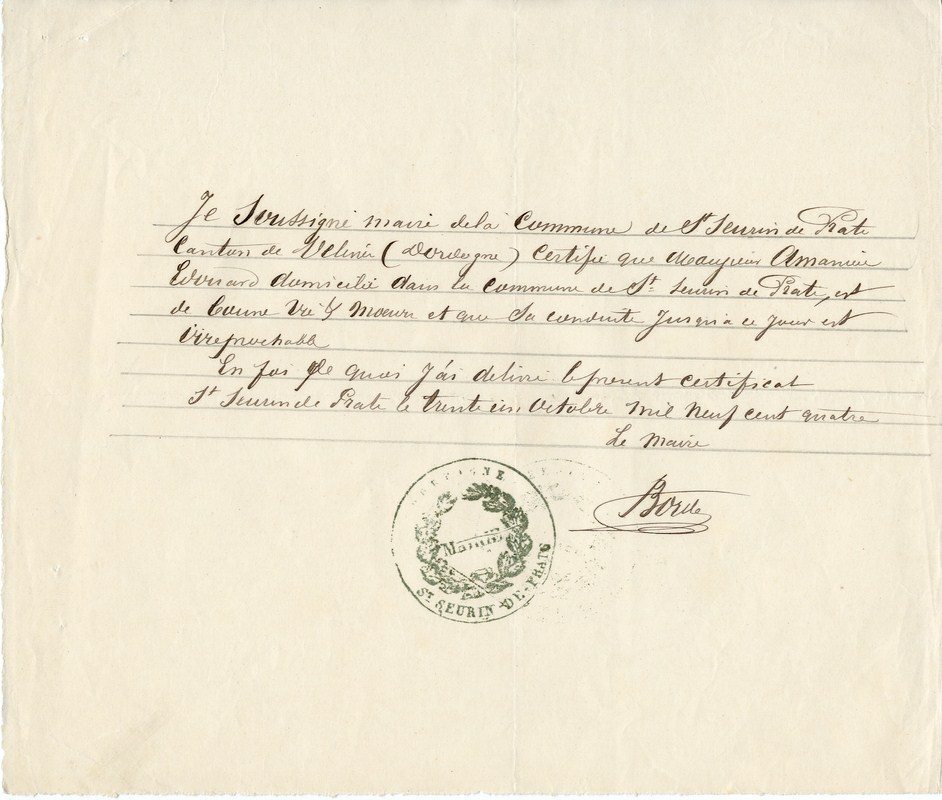 Je Soussigné maire de la Commune de St Seurin de Prats
Canton de Velines (Dordogne) Certifie que Monsieur Amanieu
Edouard domicilié dans la Commune de St. Seurin de Prats, est
de bonne vie & Moeurs et que Sa conduite Jusqu'a ce jour est
irreprochable
En foi de quoi J'ai delivré le present certificat
St Seurin de Prats le trente un Octobre Mil Neuf cent quatre
Le Maire
Borde
DORDOGNE
MAIRIE
ST SEURIN-DE-PRATS